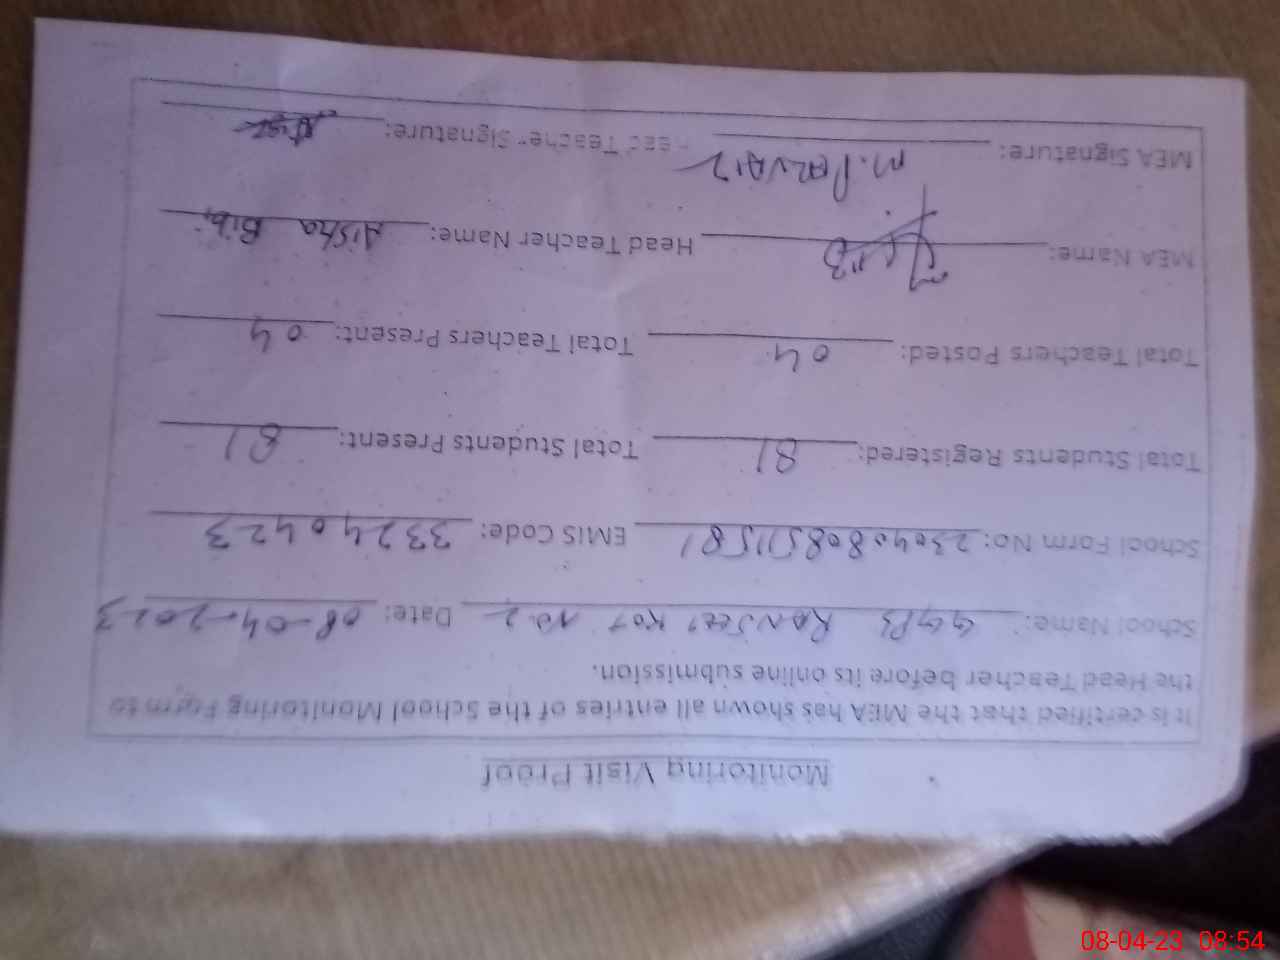 Monitoring Visit Proof
It is certified that the MEA has shown all entries of the School Monitoring Form to
the Head Teacher before its online submission.
School Name: GGPS RANJEET KOT NO.2 Date: 08-04-2023
School Form No: 230408085111581 EMIS Code: 332404 0423
Total Students Registered: 81 Total Students Present: 81
Total Teachers Posted: 04 Total Teachers Present: 04
MEA Name: Head Teacher Name: AISHA Bibi
MEA Signature: M. PARVAIZ Head Teacher Signature:
08-04-23 08:54